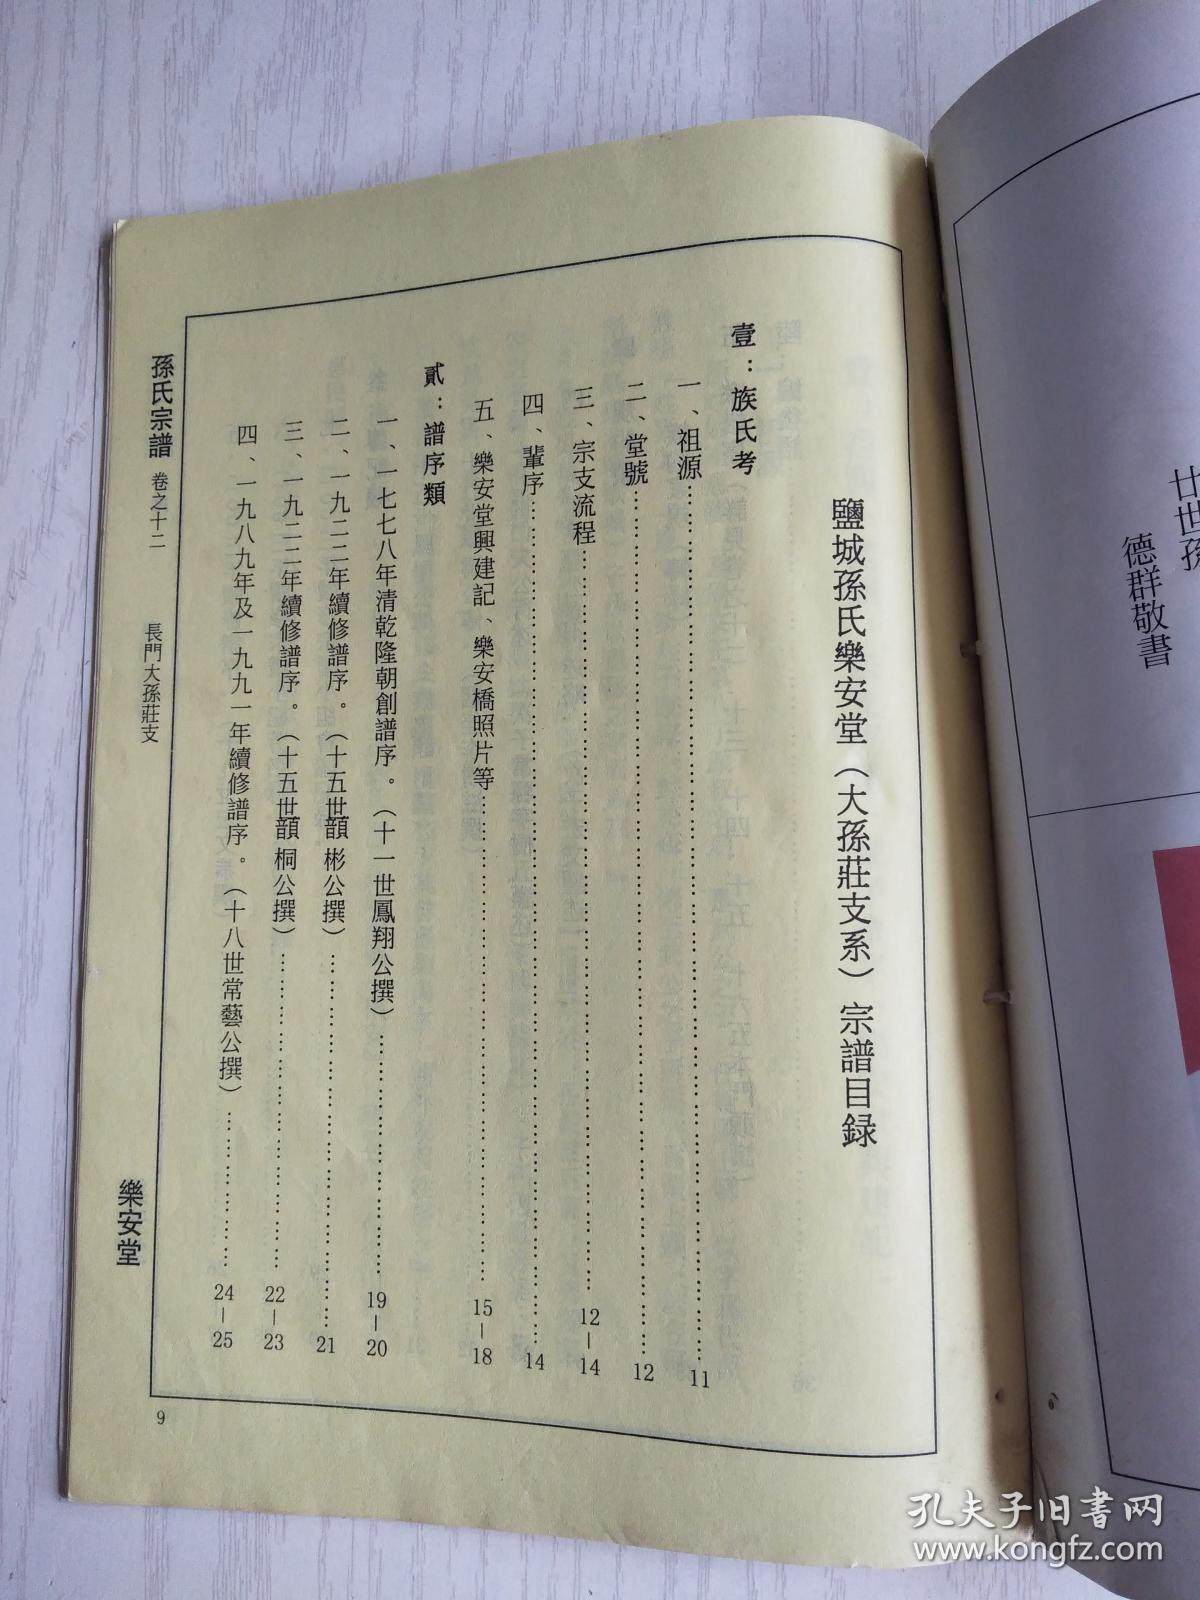 廿世孫
德群敬書
鹽城孫氏樂安堂（大孫莊支系）宗譜目録
壹：族氏考
一、祖源……………………11
二、堂號……………………12
三、宗支流程……………………12－14
四、輩序……………………14
五、樂安堂興建記、樂安橋照片等……………………15－18
貳：譜序類
一、一七七八年清乾隆朝創譜序。（十一世鳳翔公撰）……………………19－20
二、一九二二年續修譜序。（十五世韻彬公撰）……………………21
三、一九二二年續修譜序。（十五世韻桐公撰）……………………22－23
四、一九八九年及一九九一年續修譜序。（十八世常藝公撰）……………………24－25
孫氏宗譜 卷之十二 長門大孫莊支 樂安堂
9
孔夫子旧书网
www.kongfz.com